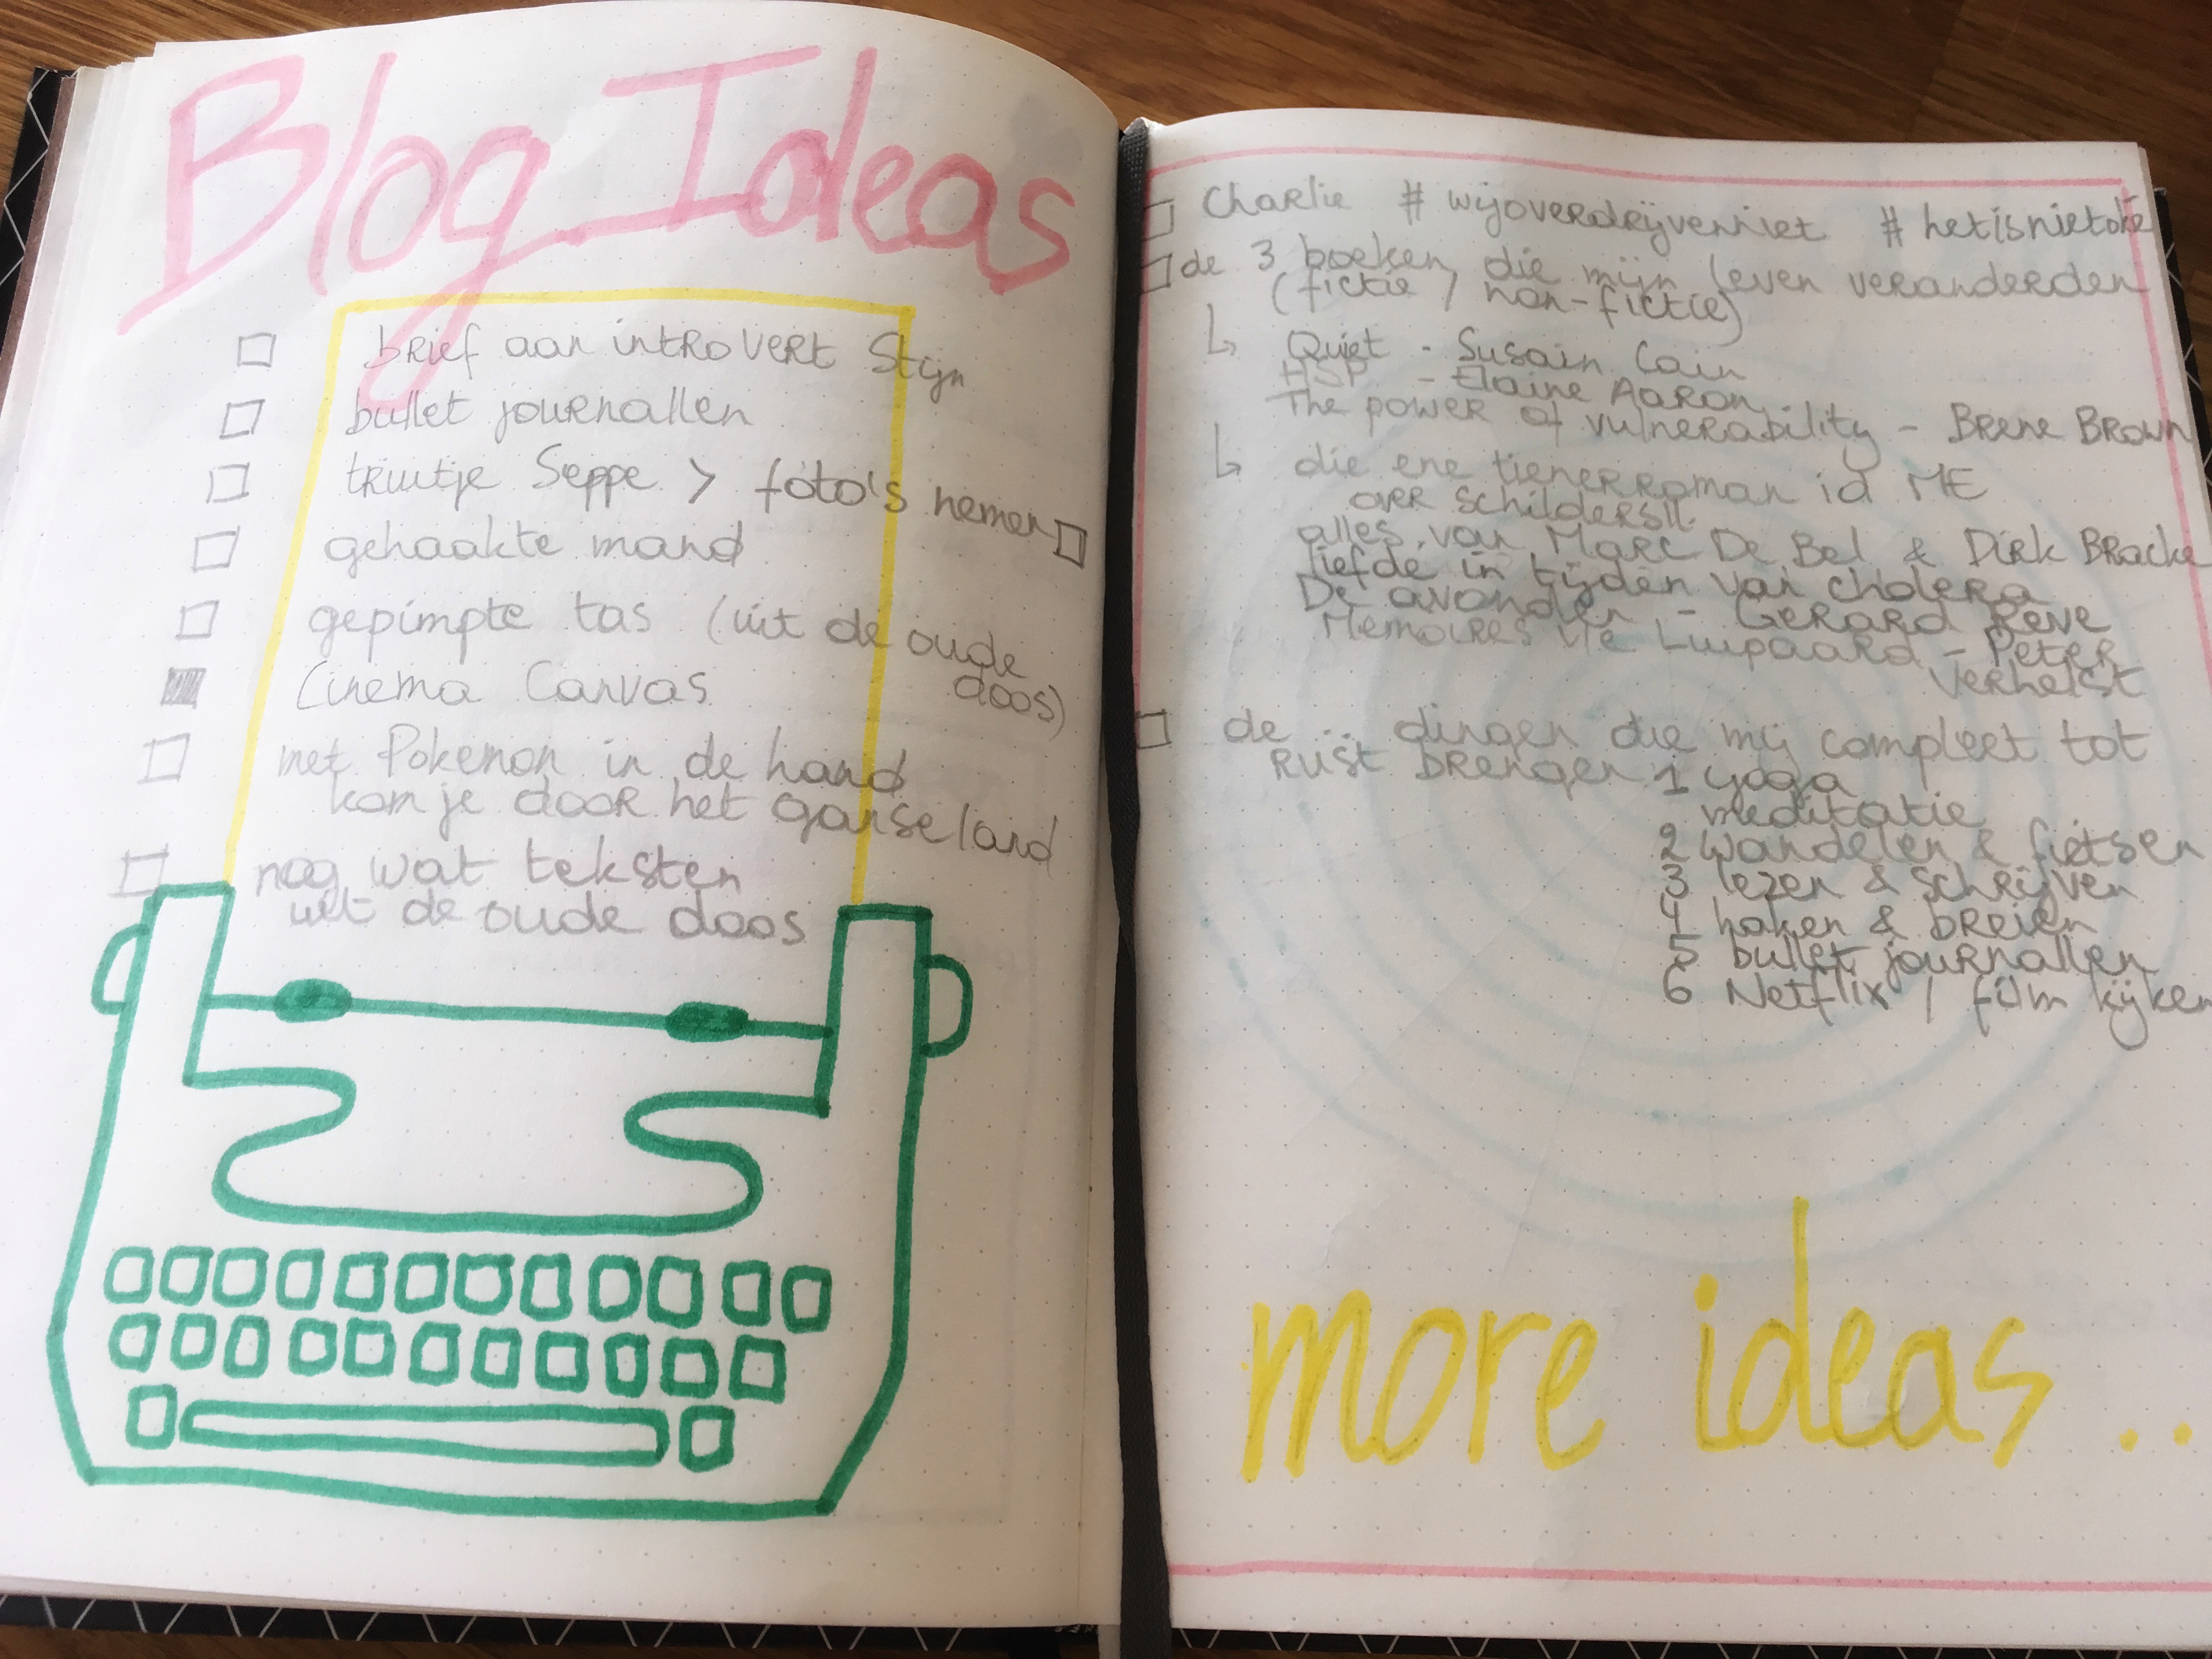 Blog Ideas
brief aan introvert Stijn
bullet journallen
truitje Seppe > foto's nemen
gehaakte mand
gepimpte tas (uit de oude
doos)
Cinema Canvas
met Pokemon in de hand
kom je door het ganse land
nog wat teksten
uit de oude doos
Charlie # wijoverdrijvenniet # hetisnietoké
de 3 boeken die mijn leven veranderden
(fictie / non-fictie)
↳ Quiet - Susain Cain
HSP - Elaine Aaron
The power of vulnerability - Brene Brown
↳ die ene tienerroman id ME
over schilders
alles van Marc De Bel & Dirk Bracke
liefde in tijden van cholera
De avonden - Gerard Reve
Memoires Luipaard - Peter
Verhelst
de ... dingen die mij compleet tot
rust brengen 1 yoga
meditatie
2 wandelen & fietsen
3 lezen & schrijven
4 haken & breien
5 bullet journallen
6 Netflix / film kijken
more ideas ..